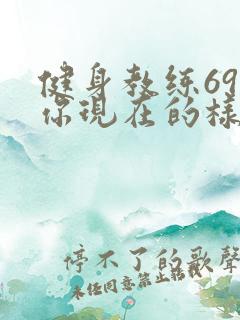 健身教练69
你現在的樣
停不了的歌聲
未经同意禁止转载